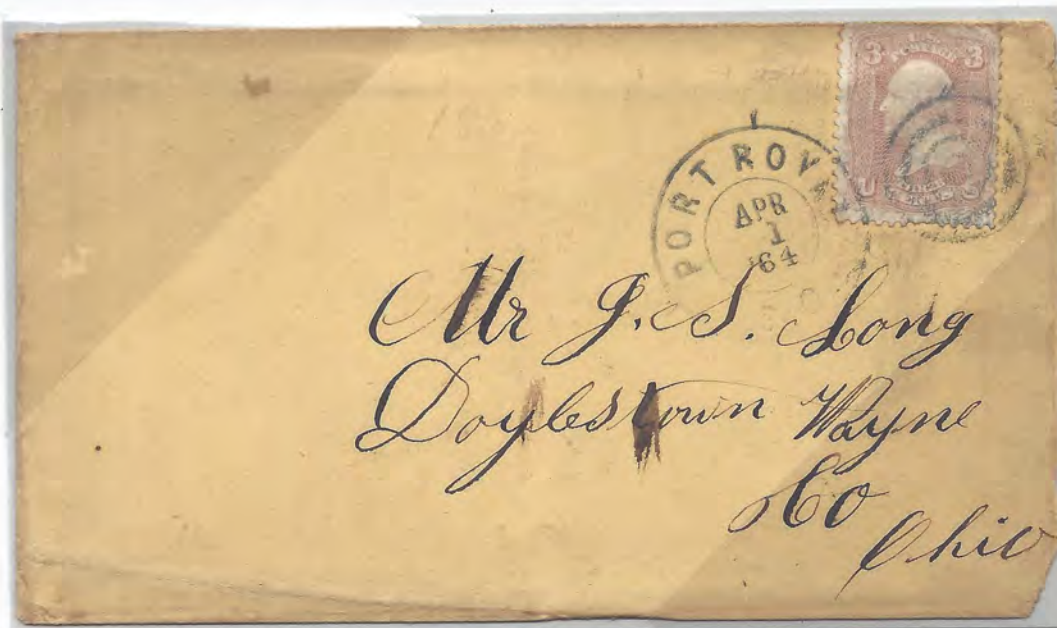 3 3
U S
PORT ROYA
APR
1
'64
Mr J. S. Long
Doylestown Wayne
Co
Ohio